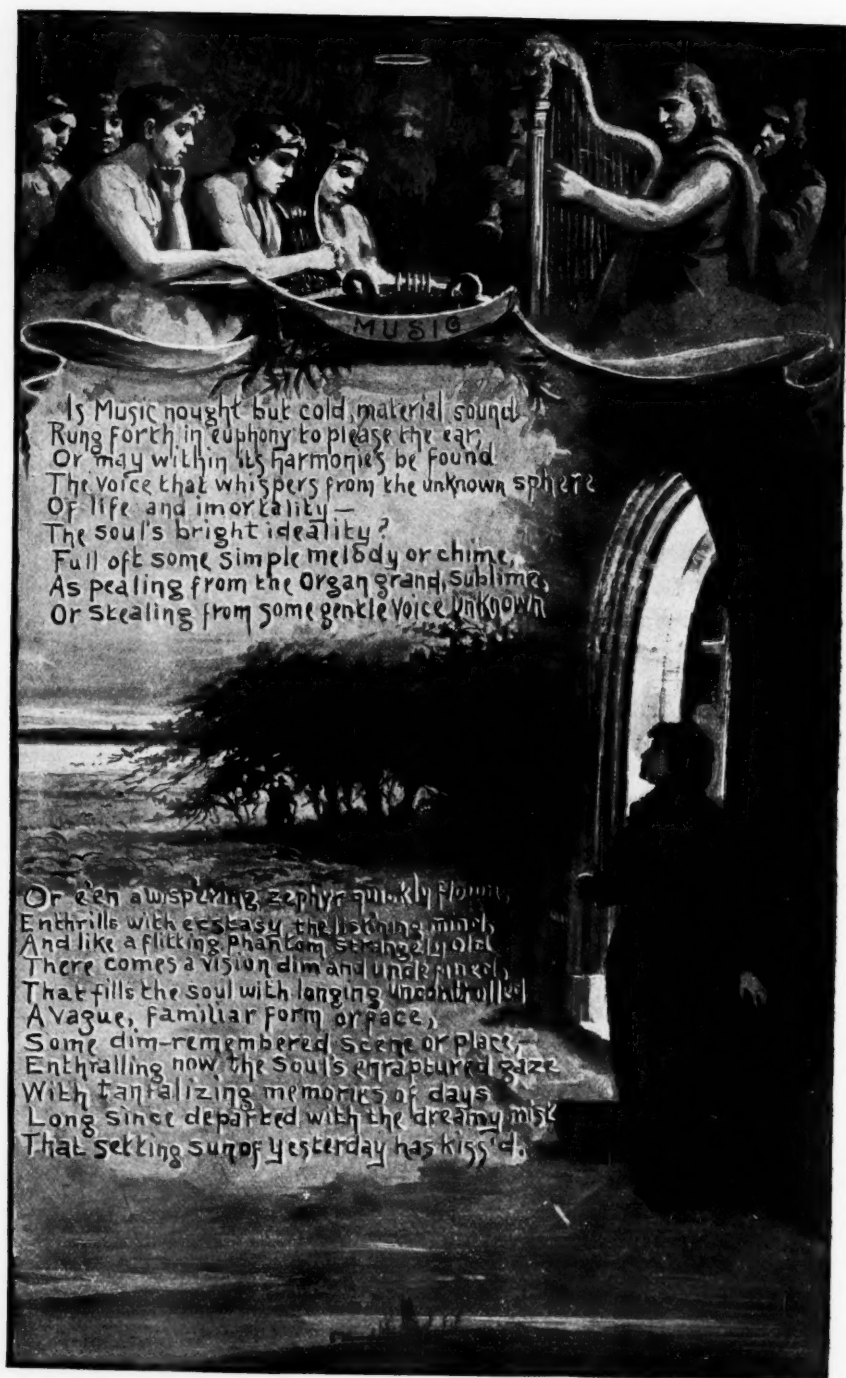 MUSIC
Is Music nought but cold, material sound
Rung forth in euphony to please the ear,
Or may within its harmonies be found
The voice that whispers from the unknown sphere
Of life and imortality —
The soul's bright ideality?
Full oft some simple melody or chime,
As pealing from the Organ grand, sublime,
Or stealing from some gentle voice unknown
Or e'en a wisp'ring zephyr quickly flown,
Enthrills with ecstasy the list'ning mind,
And like a flitting phantom strangely old
There comes a vision dim and undefined,
That fills the soul with longing uncontrolled
A vague, familiar form or face,
Some dim-remembered scene or place,—
Enthralling now the soul's enraptured gaze
With tantalizing memories of days
Long since departed with the dreamy mist
That setting sun of yesterday has kiss'd.